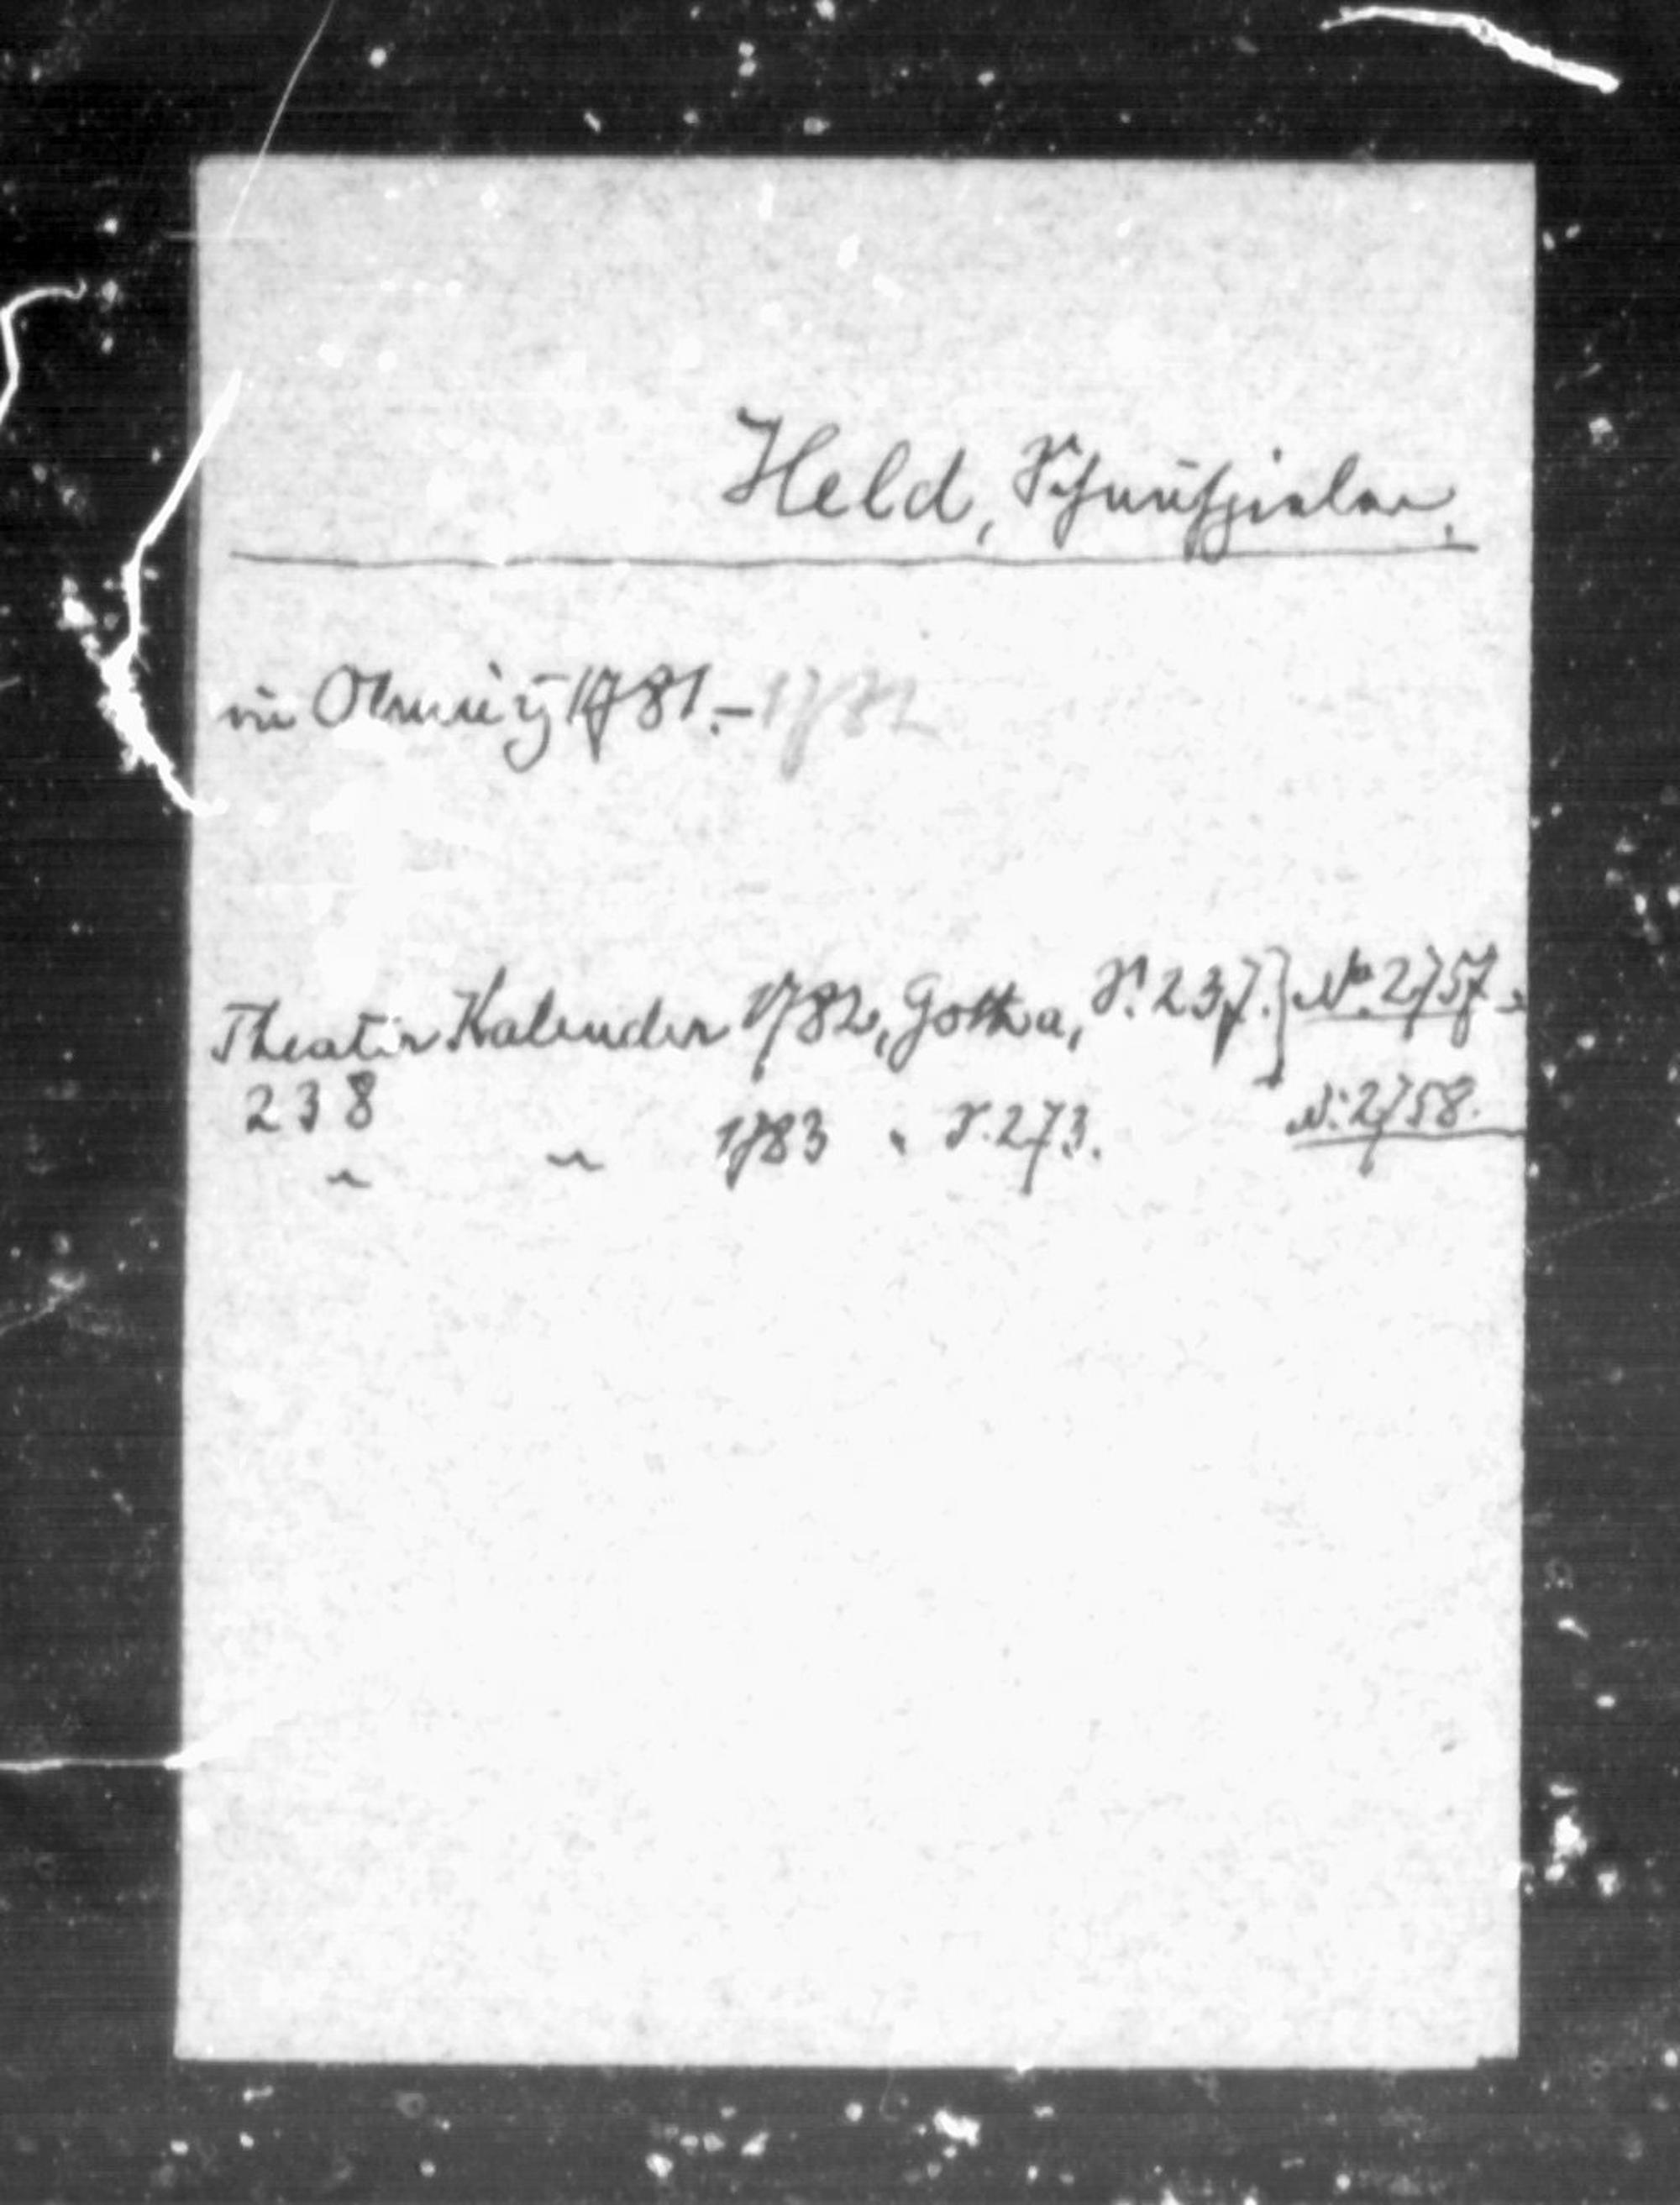 Held, Schauspieler.
in Olmütz 1781.–1782
Theater Kalender 1782, Gotha, S. 237.} No. 2757.
238
" " 1783 " S. 273. N: 2758.